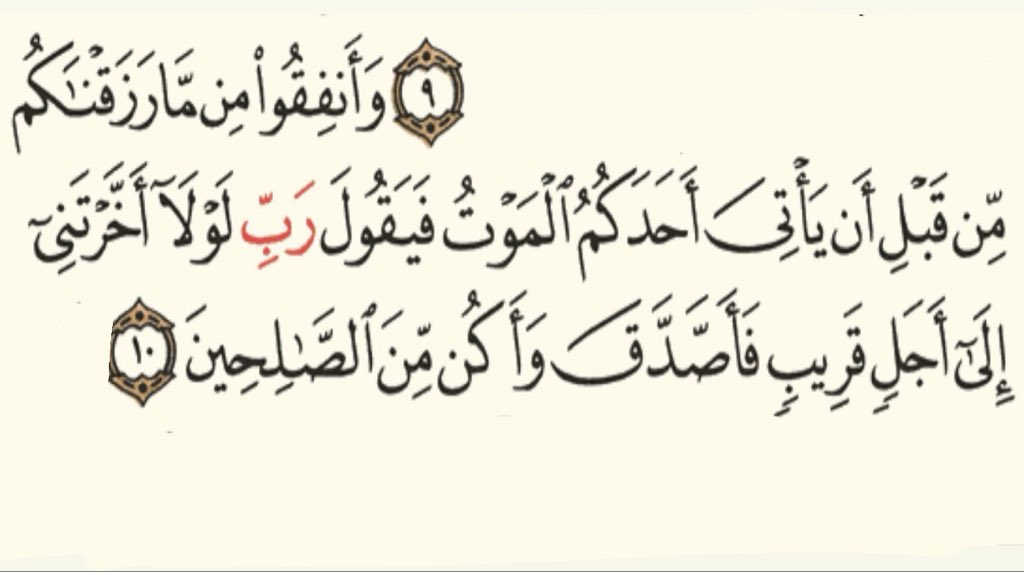 ٩ وَأَنفِقُوا۟ مِن مَّا رَزَقْنَـٰكُم
مِّن قَبْلِ أَن يَأْتِىَ أَحَدَكُمُ ٱلْمَوْتُ فَيَقُولَ رَبِّ لَوْلَآ أَخَّرْتَنِىٓ
إِلَىٰٓ أَجَلٍ قَرِيبٍ فَأَصَّدَّقَ وَأَكُن مِّنَ ٱلصَّـٰلِحِينَ ١٠